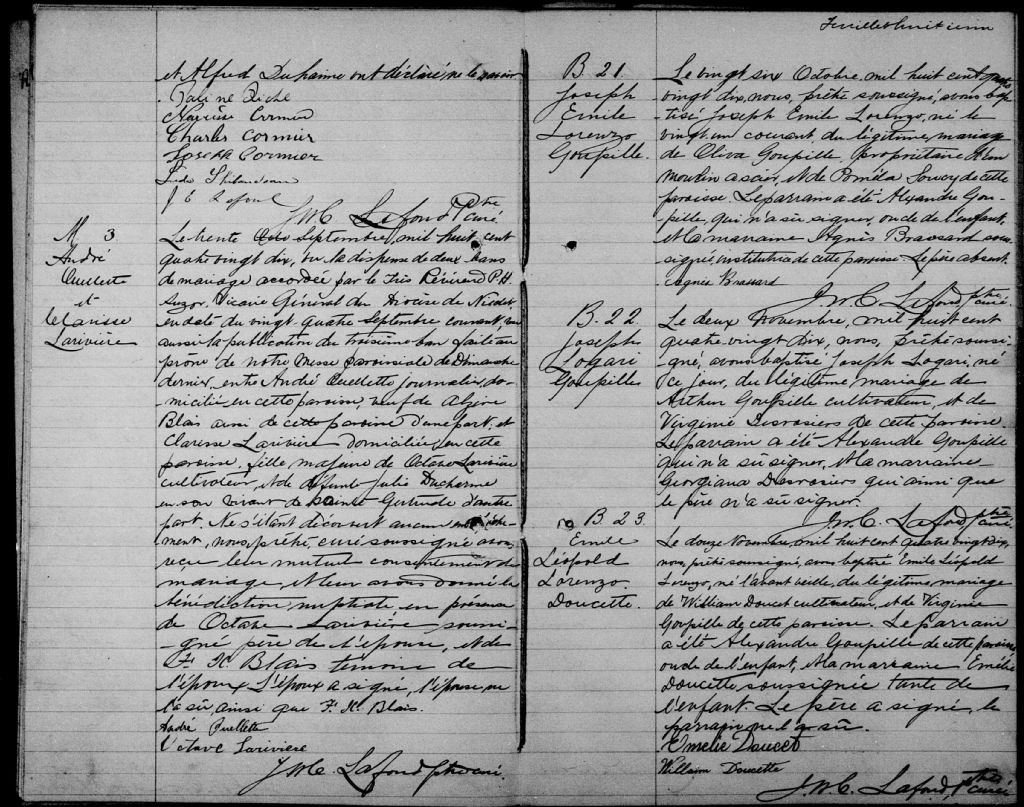 Feuillet huitième
et Alfred Duhaime ont déclaré ne le savoir
Charles Cormier
Joseph Cormier
J E Lafond
J. W. C. Lafond Ptre curé
M 3
André
Ouellette
et
Clarisse
Larivière
Le trente Septembre, mil huit cent
quatre vingt dix, vu la dispense de deux bans
de mariage accordée par le Très Révérend P. H.
Suzor, Vicaire Général du diocèse de Nicolet
en date du vingt quatre Septembre courant, vu
aussi la publication du troisième ban faite au
prône de notre Messe paroissiale de Dimanche
dernier, entre André Ouellette journalier, do-
micilié en cette paroisse, veuf de
Blais aussi de cette paroisse d'une part, et
Clarisse Larivière domiciliée en cette
paroisse, fille majeure de Octave Larivière
cultivateur, et de défunte Julie Ducharme
en son vivant de Sainte Gertrude d'autre
part. Ne s'étant découvert aucun empêche-
ment, nous, prêtre, curé soussigné avons
reçu leur mutuel consentement de
mariage, et leur avons donné la
bénédiction nuptiale, en présence
de Octave Larivière, soussi-
gné père de l'épouse, et de
F. X. Blais témoin de
l'époux L'époux a signé, l'épouse ne
l'a su ainsi que F. X. Blais.
André Ouellette
Octave Larivière
J. W. C. Lafond ptre curé.
B. 21
Joseph
Emile
Lorenzo
Goupille.
Le vingt six Octobre, mil huit cent quatre
vingt dix, nous, prêtre soussigné, avons bap-
tisé Joseph Emile Lorenzo, né le
vingt un courant du légitime mariage
de Oliva Goupille, propriétaire d'un
moulin à scier, et de Poméla Soucy de cette
paroisse. Le parrain a été Alexandre Gou-
pille, qui n'a su signer, oncle de l'enfant,
et la marraine Agnès Brassard sous-
signée, institutrice de cette paroisse. Le père absent.
Agnès Brassard
J. W. C. Lafond, ptre curé.
B. 22
Joseph
Logari
Goupille
Le deux Novembre, mil huit cent
quatre-vingt dix, nous, prêtre soussi-
gné, avons baptisé Joseph Logari, né
ce jour, du légitime mariage de
Arthur Goupille cultivateur, et de
Virginie Desrosiers de cette paroisse.
Le parrain a été Alexandre Goupille
qui n'a su signer, et la marraine
Georgiana Desrosiers qui ainsi que
le père n'a su signer.
J. W. C. Lafond ptre curé.
B. 23.
Emile
Léopold
Lorenzo
Doucette.
Le douze Novembre, mil huit cent quatre vingt dix,
nous, prêtre soussigné, avons baptisé Emile Léopold
Lorenzo, né l'avant veille, du légitime mariage
de William Doucet cultivateur, et de Virginie
Goupille de cette paroisse. Le parrain
a été Alexandre Goupille de cette paroisse,
oncle de l'enfant, et la marraine Emélie
Doucette, soussignée tante de
l'enfant. Le père a signé, le
parrain ne l'a su
Emelie Doucet
William Doucette
J. W. C. Lafond, Ptre curé